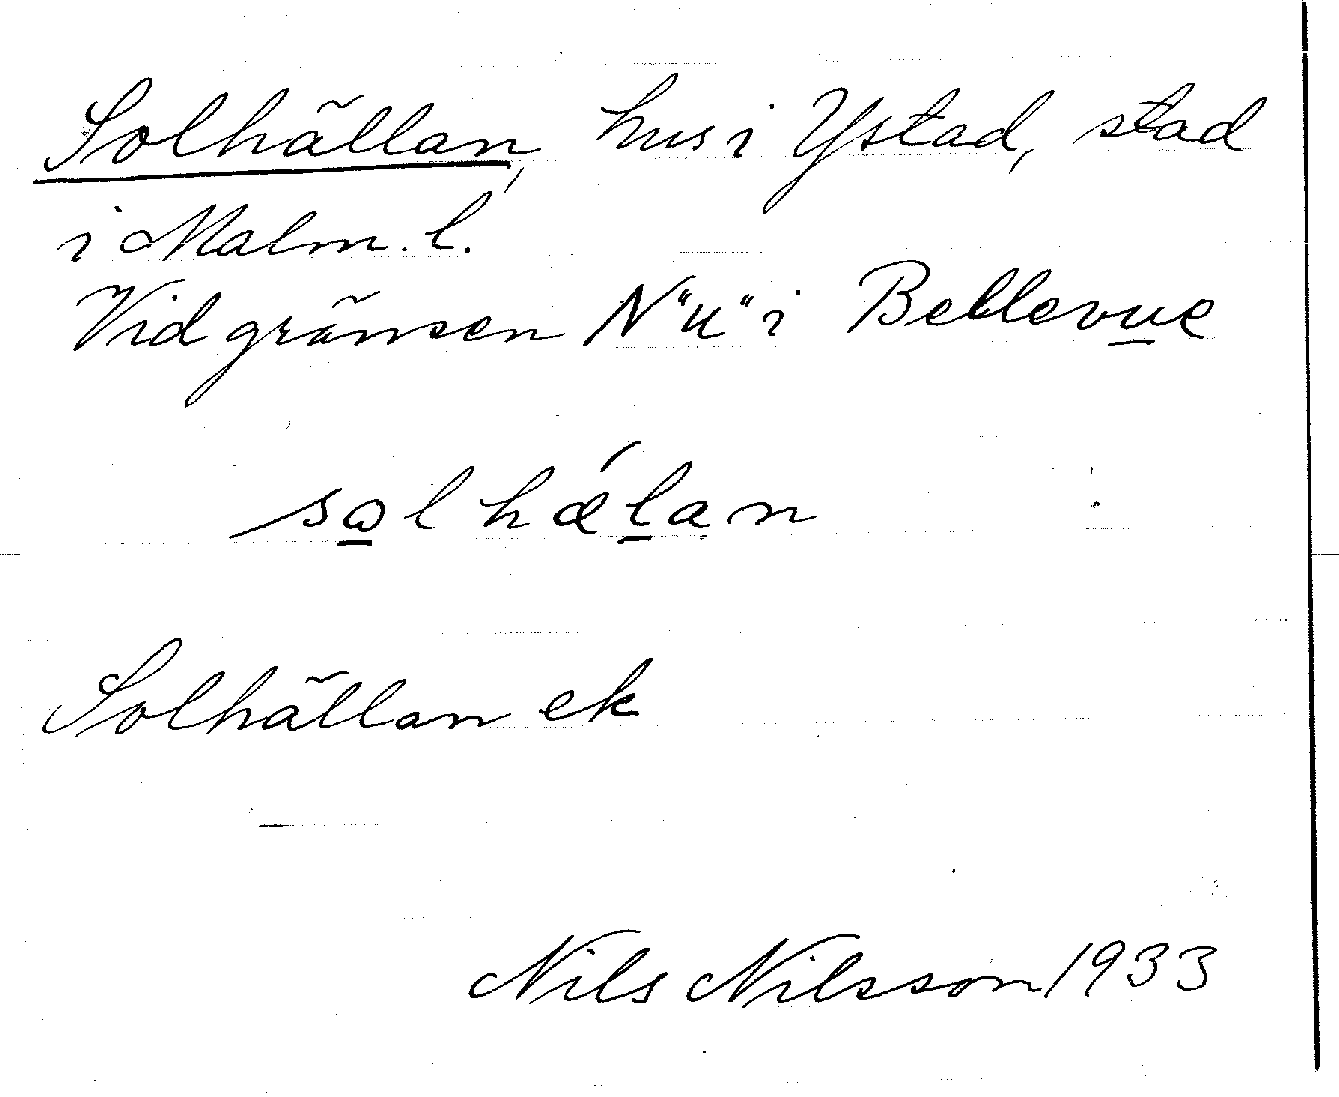 Solhällan, hus i Ystad, stad
i Malm. l.
Vid gränsen N "u" i Bellevue
solhǽlan
Solhällan ek
Nils Nilsson 1933